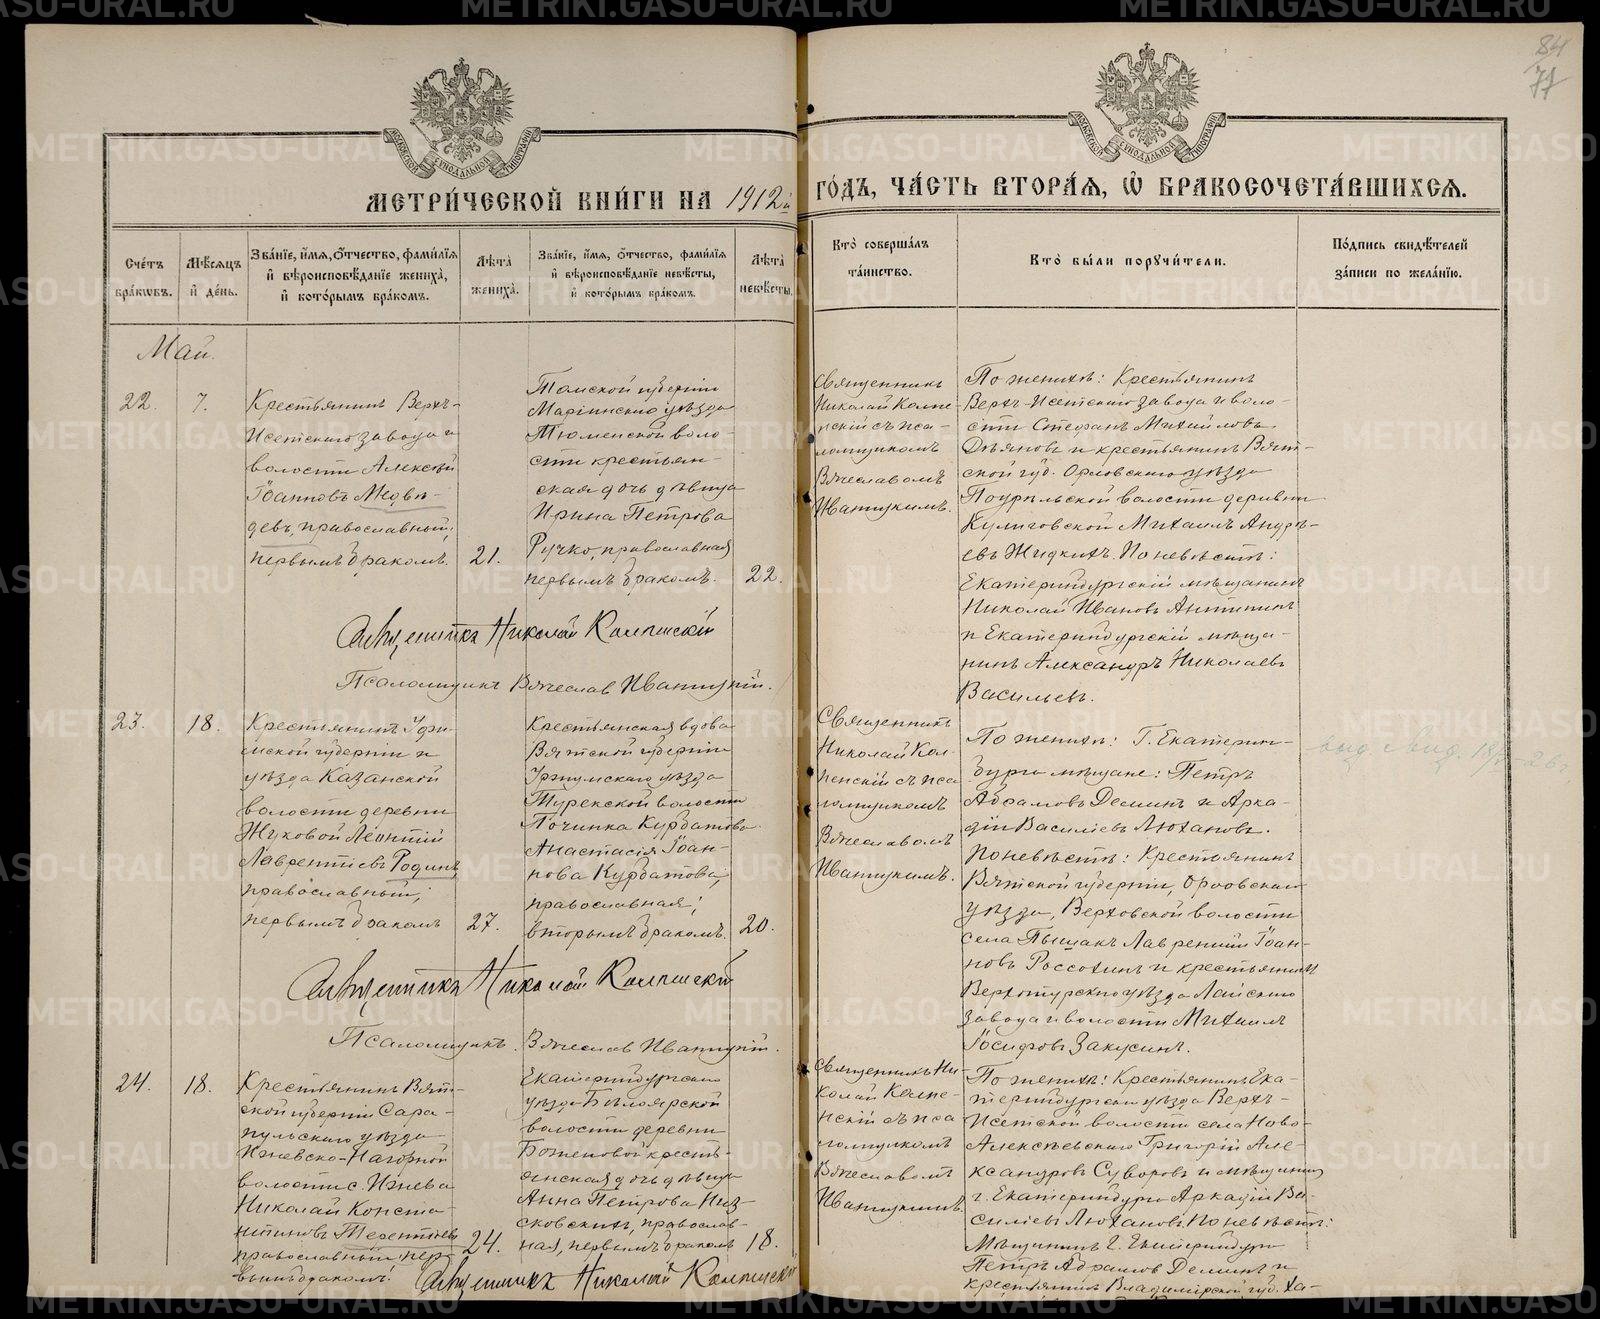 84
77
МЕТРИ́ЧЕСКОЙ КНИ́ГИ НА 1912й ГО́ДЪ, ЧА́СТЬ ВТОРА́Ѧ, Ѡ҆ БРАКОСОЧЕТА́ВШИХСѦ.
Сче́тъ бра́кѡвъ.
Мѣ́сѧцъ и҆ де́нь.
Зва́нїе, и҆́мѧ, ѻ҆́тчество, фами́лїѧ и҆ вѣроисповѣ́данїе жениха̀, и҆ кото́рымъ бра́комъ.
Лѣ́та жениха̀.
Зва́нїе, и҆́мѧ, ѻ҆́тчество, фами́лїѧ и҆ вѣроисповѣ́данїе невѣ́сты, и҆ кото́рымъ бра́комъ.
Лѣ́та невѣ́сты.
Кто̀ соверша́лъ та́инство.
Кто̀ бы́ли порꙋчи́тели.
По́дпись свидѣ́телей за́писи по жела́нїю.
Май.
22.
7.
Крестьянинъ Верхъ-
Исетскаго завода и
волости Алексѣй
Іоанновъ Медвѣ-
девъ, православный,
первымъ бракомъ.
21.
Томской губерніи
Маріинскаго уѣзда
Тюменской воло-
сти крестьян-
ская дочь дѣвица
Ирина Петрова
Ручко, православная
первымъ бракомъ.
22.
Священникъ
Николай Колпе-
нскій съ пса-
ломщикомъ
Вячеславомъ
Иваницкимъ.
По женихѣ: Крестьянинъ
Верхъ-Исетскаго завода и воло-
сти Стефанъ Михайловъ
и крестьянинъ Вят-
ской губ. Орловскаго уѣзда
волости деревни
Кулиговской Михаилъ Андре-
евъ Жидкихъ. По невѣстѣ:
Екатеринбургскій мѣщанинъ
Николай Ивановъ Антипинъ
и Екатеринбургскій мѣща-
нинъ Александръ Николаевъ
Васильевъ.
Священникъ Николай Колпенскій
Псаломщикъ Вячеславъ Иваницкій.
23.
18.
Крестьянинъ Уфи-
мской губерніи и
уѣзда Казанской
волости деревни
Жуковой Леонтій
Лаврентіевъ Родинъ,
православный,
первымъ бракомъ
27.
Крестьянская вдова
Вятской губерніи
Уржумскаго уѣзда
Турекской волости
Починка Курбатова
Анастасія Іоан-
нова Курбатова,
православная,
вторымъ бракомъ.
20.
Священникъ
Николай Кол-
пенскій съ пса
ломщикомъ
Вячеславомъ
Иваницкимъ.
По женихѣ: Г. Екатерин-
бурга мѣщане: Петръ
Абрамовъ Деминъ и Арка-
дій Василіевъ Люхановъ.
По невѣстѣ: Крестьянинъ
Вятской губерніи, Орловскаго
уѣзда, Верховской волости
села Пышакъ Лаврентій Іоан-
новъ Россохинъ и крестьянинъ
Верхотурскаго уѣзда Лайскаго
завода и волости Михаилъ
Іосифовъ Закусинъ.
Священникъ Николай Колпенскій
Псаломщикъ Вячеславъ Иваницкій.
24.
18.
Крестьянинъ Вят-
ской губерніи Сара-
пульскаго уѣзда
Ижевско-Нагорной
волости с. Ижева
Николай Конста-
нтиновъ Терентьевъ
православный, пер-
вымъ бракомъ.
24.
Екатеринбургскаго
уѣзда Бѣлоярской
волости деревни
Боженовой кресть-
янская дочь дѣвица
Анна Петрова Низ-
сковскихъ, православ-
ная, первымъ бракомъ
18.
Священникъ Ни-
колай Колпе-
нскій съ пса
ломщикомъ
Вячеславомъ
Иваницкимъ.
По женихѣ: Крестьянинъ Ека-
теринбургскаго уѣзда Верхъ-
Исетской волости села Ново-
Алексѣевскаго Григорій Але-
ксандровъ Суворовъ и мѣщанинъ
г. Екатеринбурга Аркадій Ва-
силіевъ Люхановъ. По невѣстѣ:
Мѣщанинъ г. Екатеринбурга
Петръ Абрамовъ Деминъ и
крестьянинъ Владимірской губ.
Священникъ Николай Колпенскій
METRIKI.GASO-URAL.RU